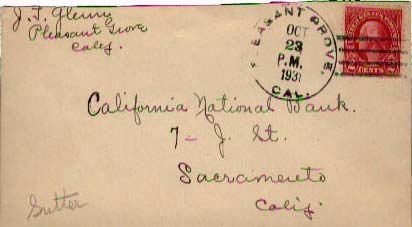 J. F. Glenn
Pleasant Grove
Calif.
PLEASANT GROVE,
OCT
23
P.M.
1931
CAL.
2 CENTS 2
California National Bank.
7 - J. St.
Sacramento
Calif.
Sutter